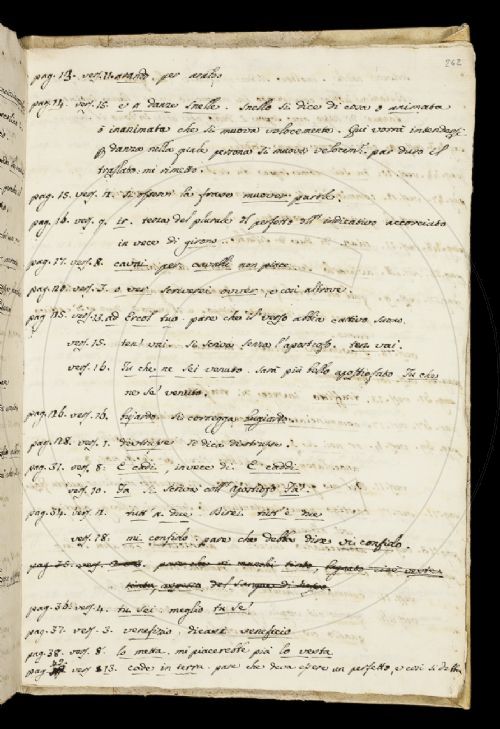 262
pag. 13. vers. 11. arando. per
pag. 14. vers. 15. e a danze snelle. Snello si dice di cosa o animata
o inanimata che si muova velocemente. Qui vorrà intendersi
danza nella quale persona si muova velocemte. par duro il
traslato. mi rimetto.
pag. 15. vers. 11. si osservi la frase muover parole.
pag. 16. vers. 9. ir. terza del plurale del perfetto dell' indicativo accorciato
in vece di girono.
pag. 17. vers. 8. cavai per cavalli non piace.
pag. 20. vers. 3. o ver scriverei ovver, e così altrove.
pag. 25. vers. 13. ad Ercol tuo. pare che il verso abbia cattivo suono.
vers. 15. ten' vai. si scriva senza l'apostrofo. ten vai.
vers. 16. Tu che ne sei venuto. sarà più bello apostrofato Tu che
ne se' venuto.
pag. 26. vers. 16. bujardo si corregga bugiardo.
pag. 28. vers. 1. distruge si dica distrusse.
pag. 31. vers. 8. E cadi, invece di. E caddi
vers. 10. Fa si scriva coll' apostrofo Fa'.
pag. 34. vers. 11. tutt a due Direi. tutt' e due
vers. 18. mi confido. pare che debba dire vi confido.
pag. 35. vers.
pag. 36. vers. 4. tu sei meglio tu se'
pag. 37. vers. 3. venefizio, dicasi veneficio
pag. 38. vers. 8. lo metta. mi piacerebbe più lo versa
pag. 40. vers. 13. cade in terra. pare che deva essere un perfetto, e così si debba